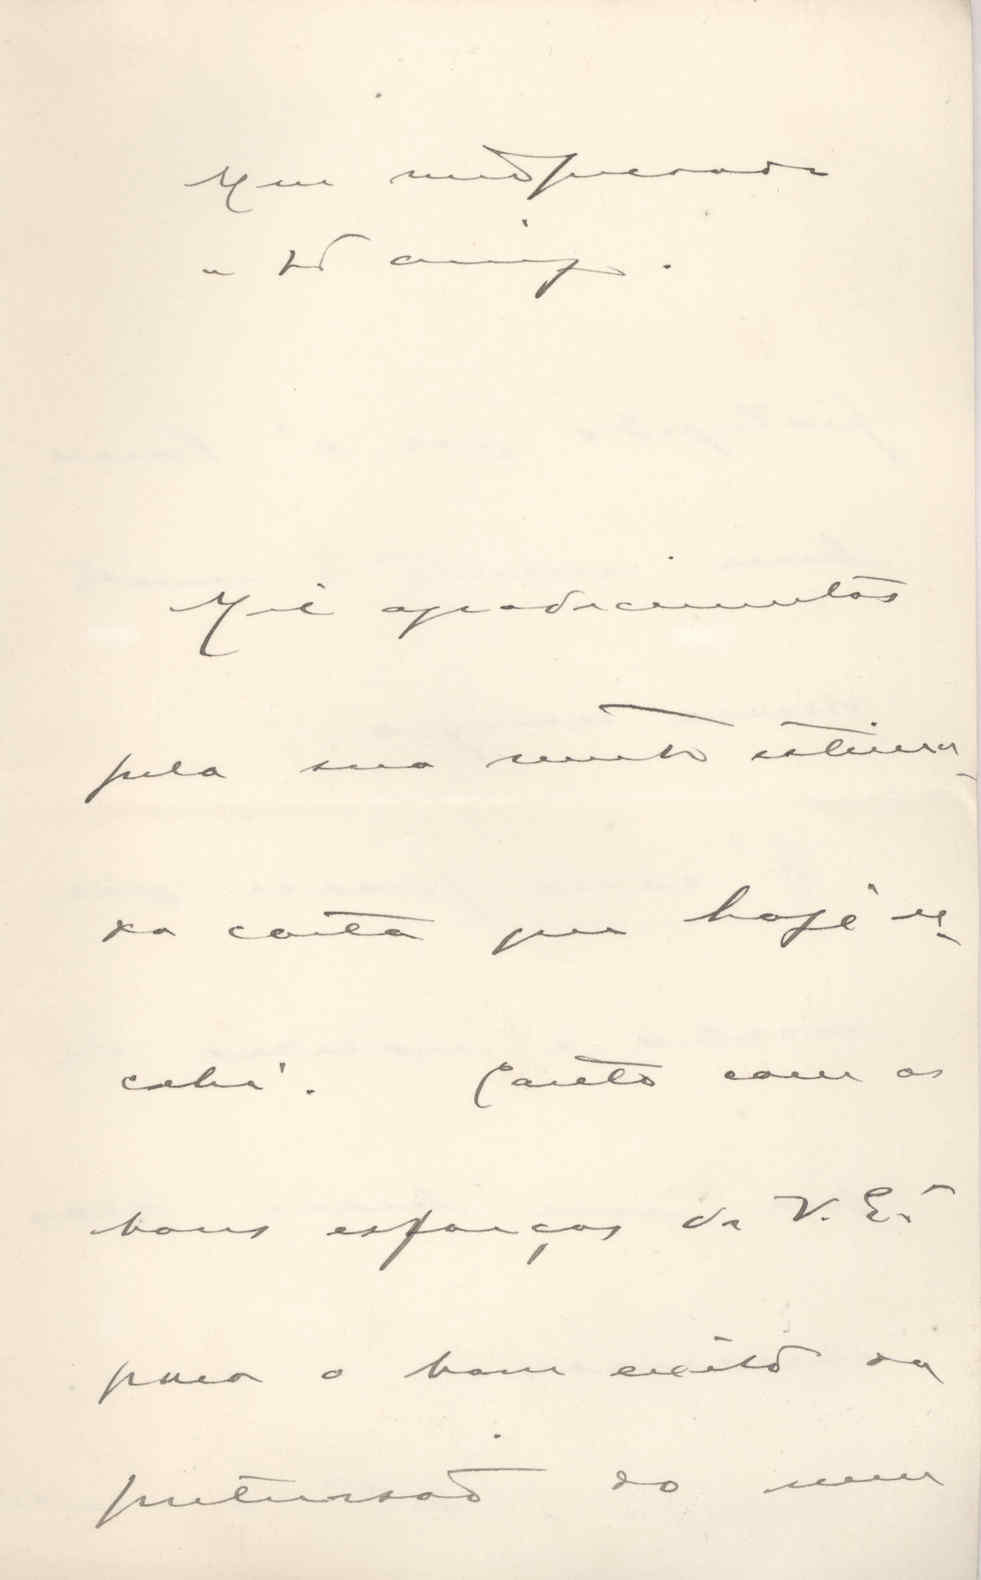 Meu 
e Bom amigo.
Mil agradecimentos
pela sua muito estima-
da carta que hoje re-
cebi. Conto com os
bons esforços de V. Ex.ª
para o bom exito da
pretensão do meu